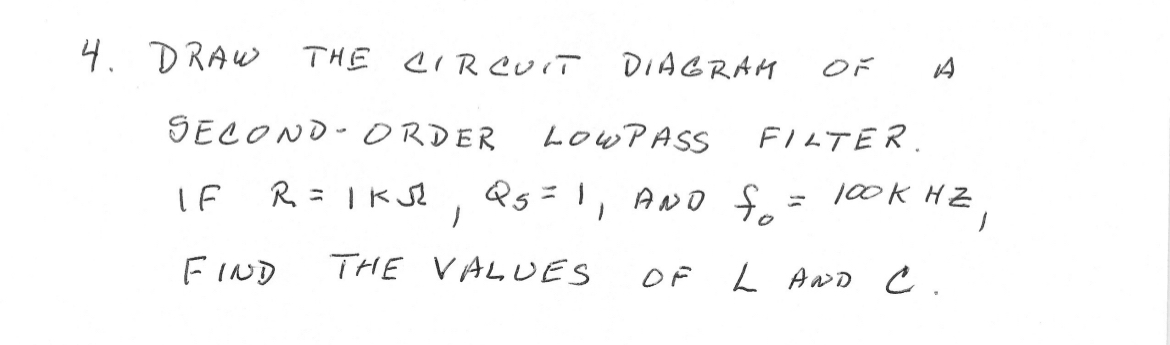 4. DRAW THE CIRCUIT DIAGRAM OF A
SECOND-ORDER LOWPASS FILTER.
IF R = 1KΩ, Qs = 1, AND fo = 100K HZ,
FIND THE VALUES OF L AND C.